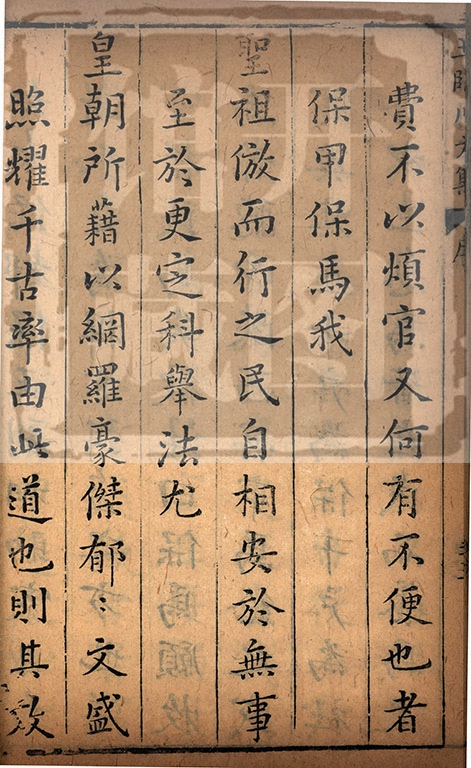 費不以煩官又何有不便也者
保甲保馬我
聖祖倣而行之民自相安於無事
至於更定科舉法尤
皇朝所藉以網羅豪傑郁〻文盛
照耀千古率由此道也則其效